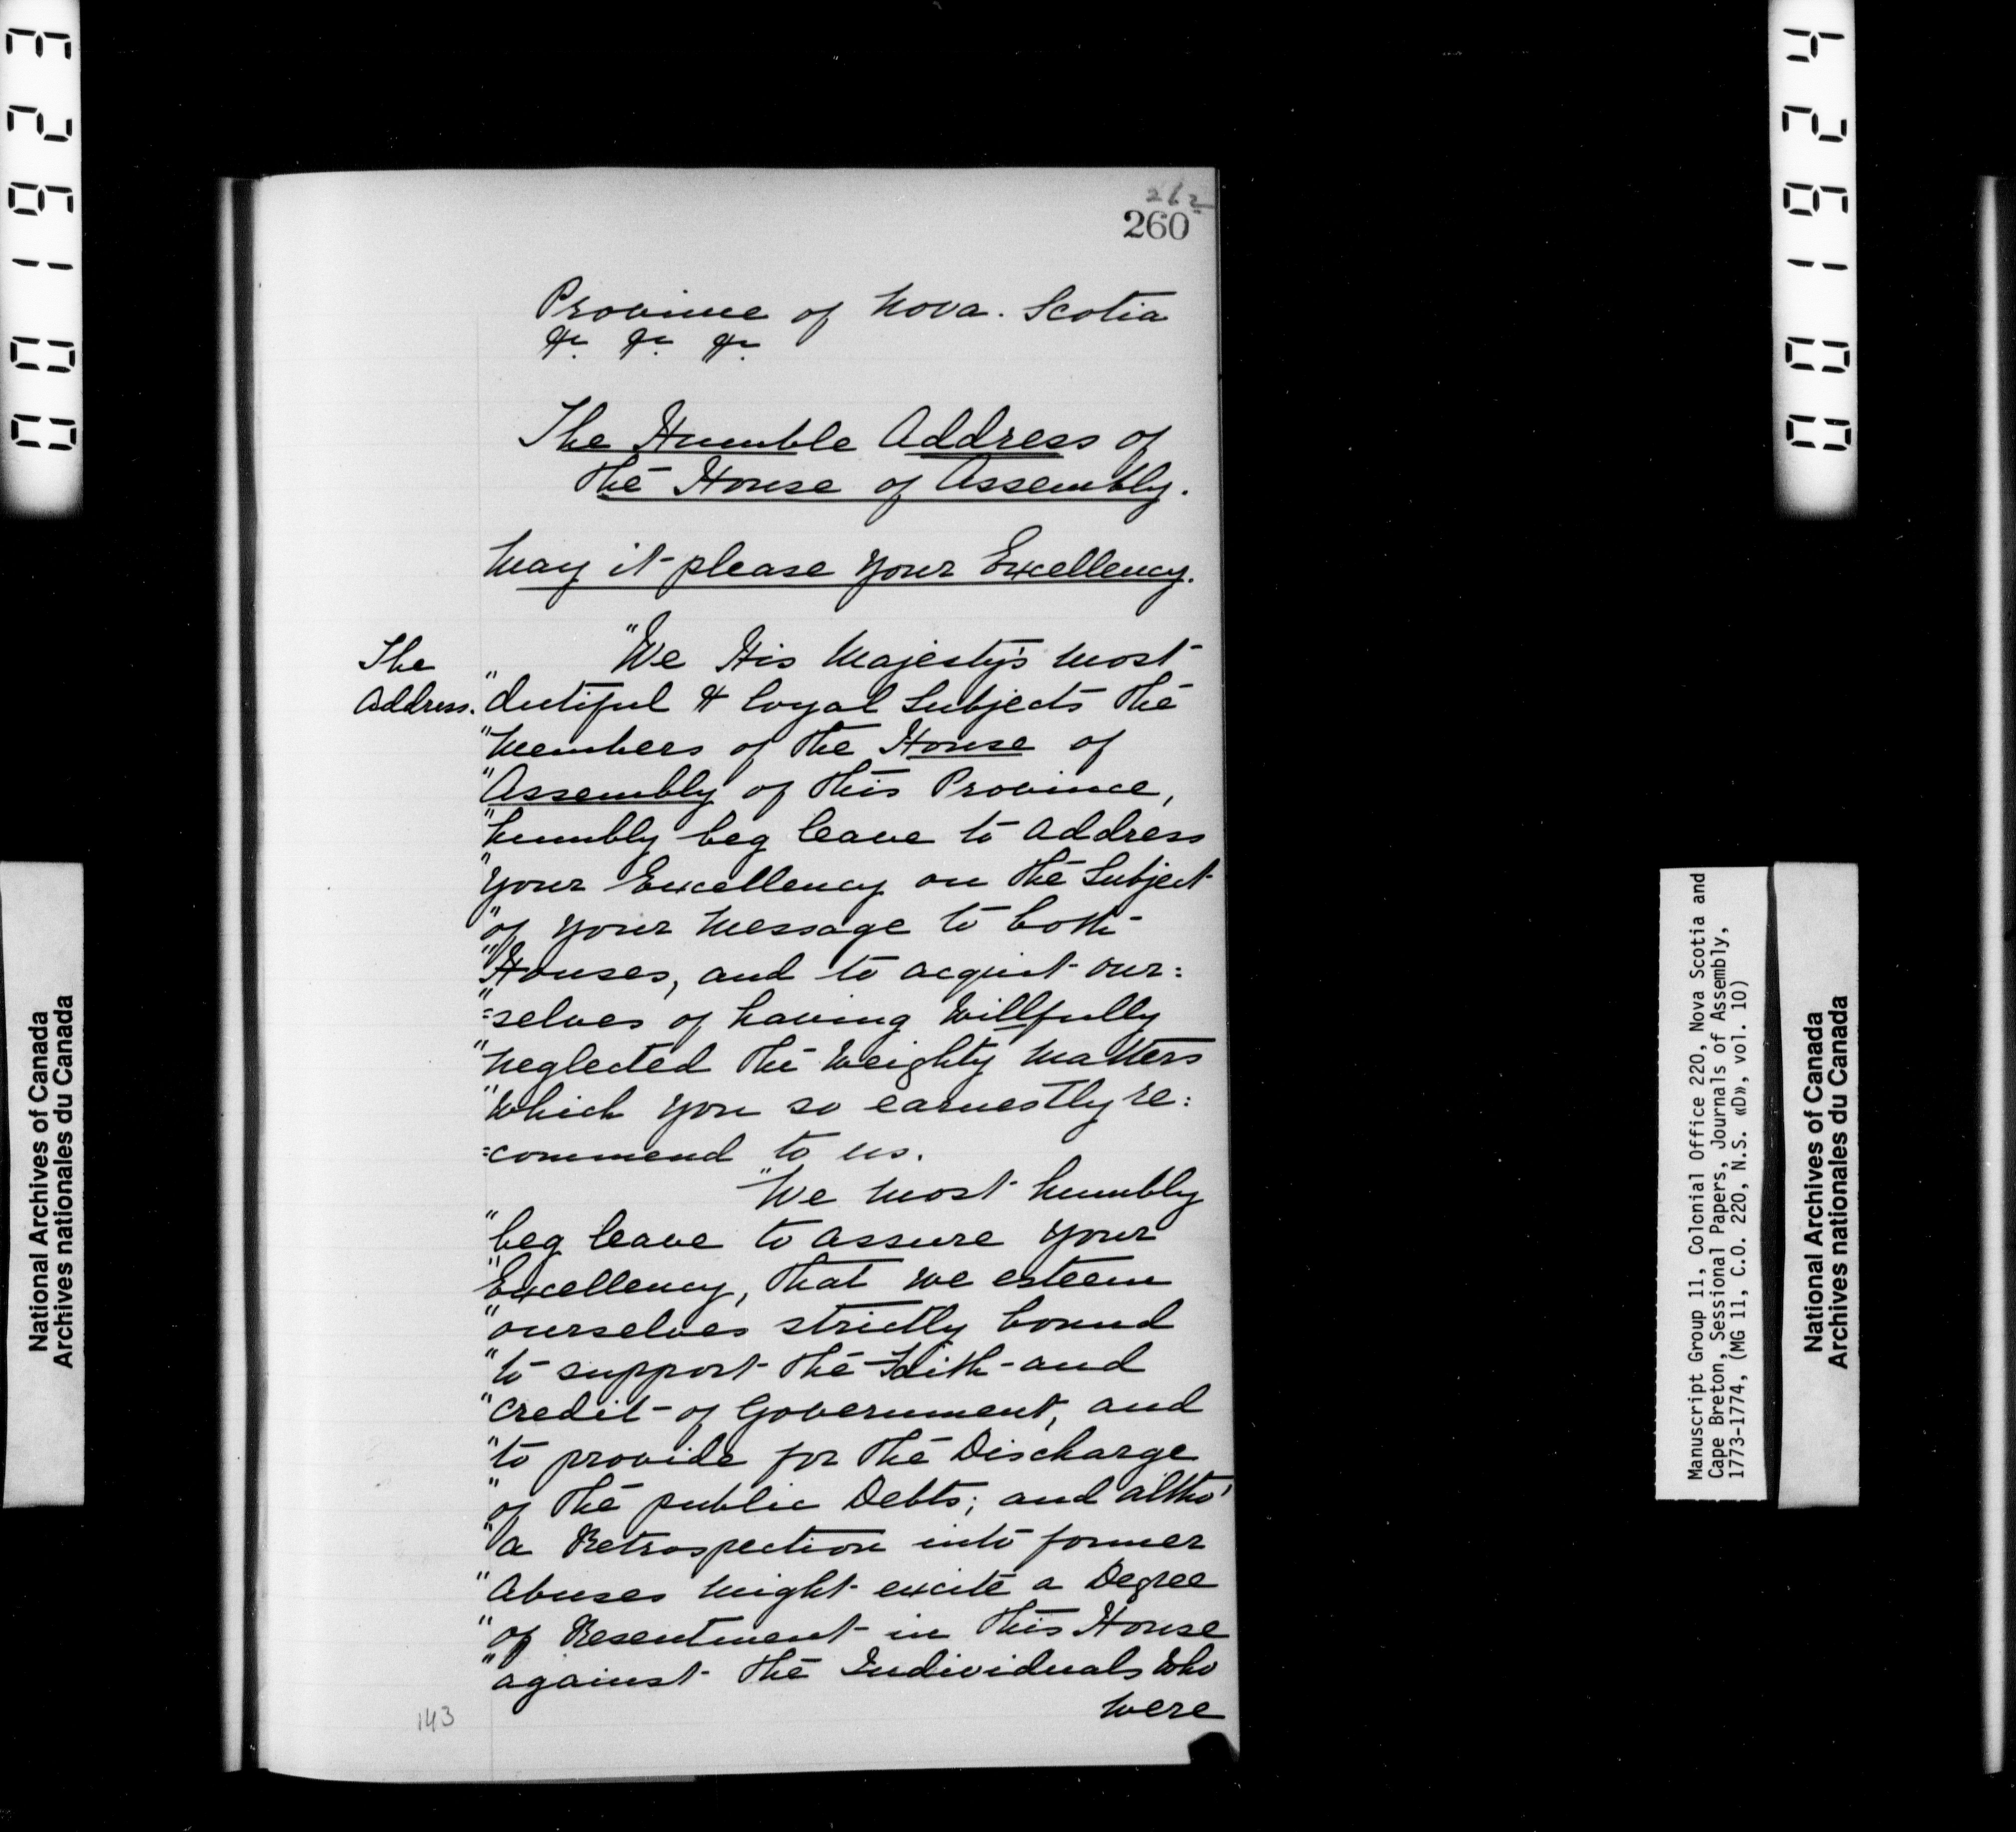 262
260
Province of Nova. Scotia
&c. &c. &c.
The Humble Address of
the House of Assembly.
May it please Your Excellency.
The
Address.
"We His Majesty's most
"dutiful & loyal Subjects the
"Members of the House of
"Assembly of this Province,
"humbly beg leave to Address
"Your Excellency on the Subject
"of Your Message to both
"Houses, and to acquit our:
"=selves of having Willfully
"neglected the Weighty Matters
"Which You so earnestly re:
=commend to us.
"We most humbly
"beg leave to assure Your
"Excellency, that we esteem
"ourselves strictly bound
"to support the Faith and
"Credit of Government, and
"to provide for the Discharge
"of the public Debts; and altho'
"a Retrospection into former
"Abuses might excite a Degree
"of Resentment in this House
"against the Individuals Who
were
143
321900
421900
National Archives of Canada
Archives nationales du Canada
Manuscript Group 11, Colonial Office 220, Nova Scotia and
Cape Breton, Sessional Papers, Journals of Assembly,
1773-1774, (MG 11, C.O. 220, N.S. «D», vol. 10)
National Archives of Canada
Archives nationales du Canada